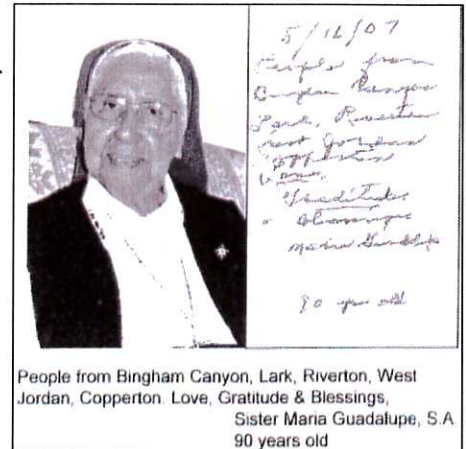 5/16/07
People from
Bingham Canyon
Lark, Riverton
West Jordan
Copperton
Love,
Gratitude
& Blessings
Maria Guadalupe
90 years old
People from Bingham Canyon, Lark, Riverton, West
Jordan, Copperton. Love, Gratitude & Blessings,
Sister Maria Guadalupe, S.A
90 years old